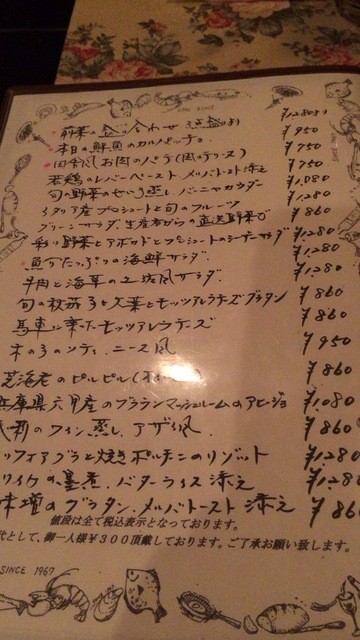 前菜の盛り合わせ ¥1280より
本日の鮮魚のカルパッチョ。 ¥950
田舎風お肉のパテ ¥750
若鶏のレバーペースト メルバトースト添え ¥750
旬の野菜のせいろ蒸し バーニャカウダー ¥1,080
イタリア産プロシュートと旬のフルーツ ¥1,280
グリーンサラダ 生産者からの直送野菜 ¥860
彩り野菜とアボカドとプロシュートのシーザーサラダ ¥1280
魚介たっぷりの海鮮サラダ ¥1,280
牛肉と海草のサラダ ¥1,280
旬の秋茄子と大葉とモッツアレラチーズグラタン ¥860
馬車に乗ったモッツアレラチーズ ¥860
木の子のソティ ニース風 ¥860
芝海老のピルピル ¥950
兵庫県六甲産のブラウンマッシュルームのアヒージョ ¥860
のワイン蒸し アサイ風 ¥1,080
フォアグラと焼ポルチーニのリゾット ¥1280
イカの墨煮 バターライス添え ¥1,28
味噌のグラタン メルバトースト添え ¥860
値段は全て税込表示となっております。
代として、御一人様¥300頂戴しております。ご了承お願い致します。
SINCE 1967